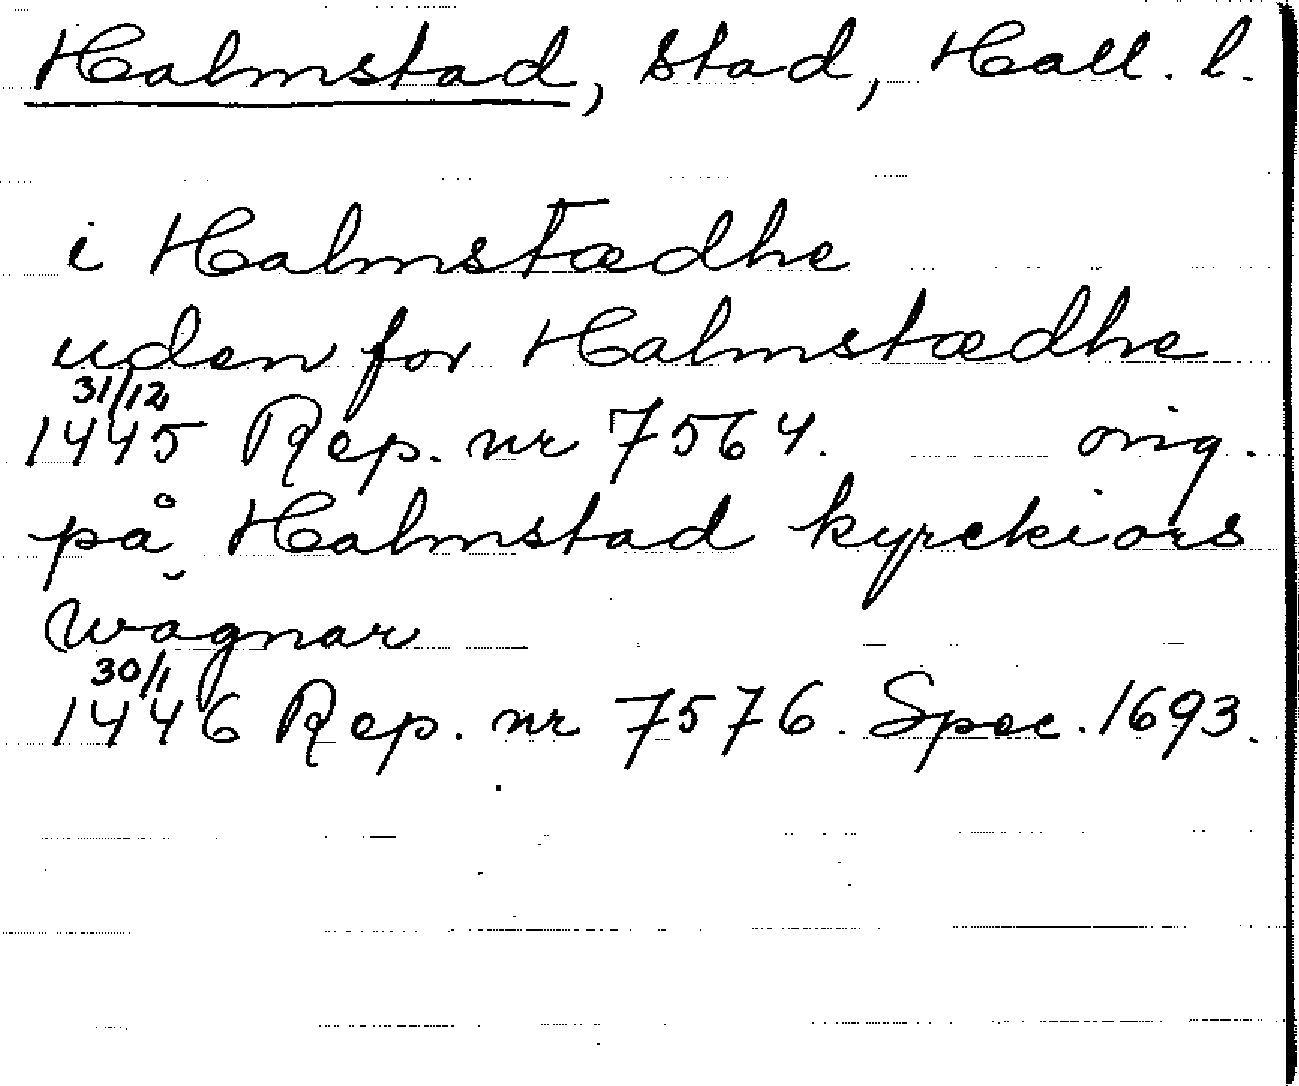 Halmstad, stad, Hall. l.
i Halmstædhe
uden for Halmstædhe
31/12
1445 Rep. nr 7564. orig.
på Halmstad kyrckiors
wågnar
30/1
1446 Rep. nr 7576. Spec. 1693.